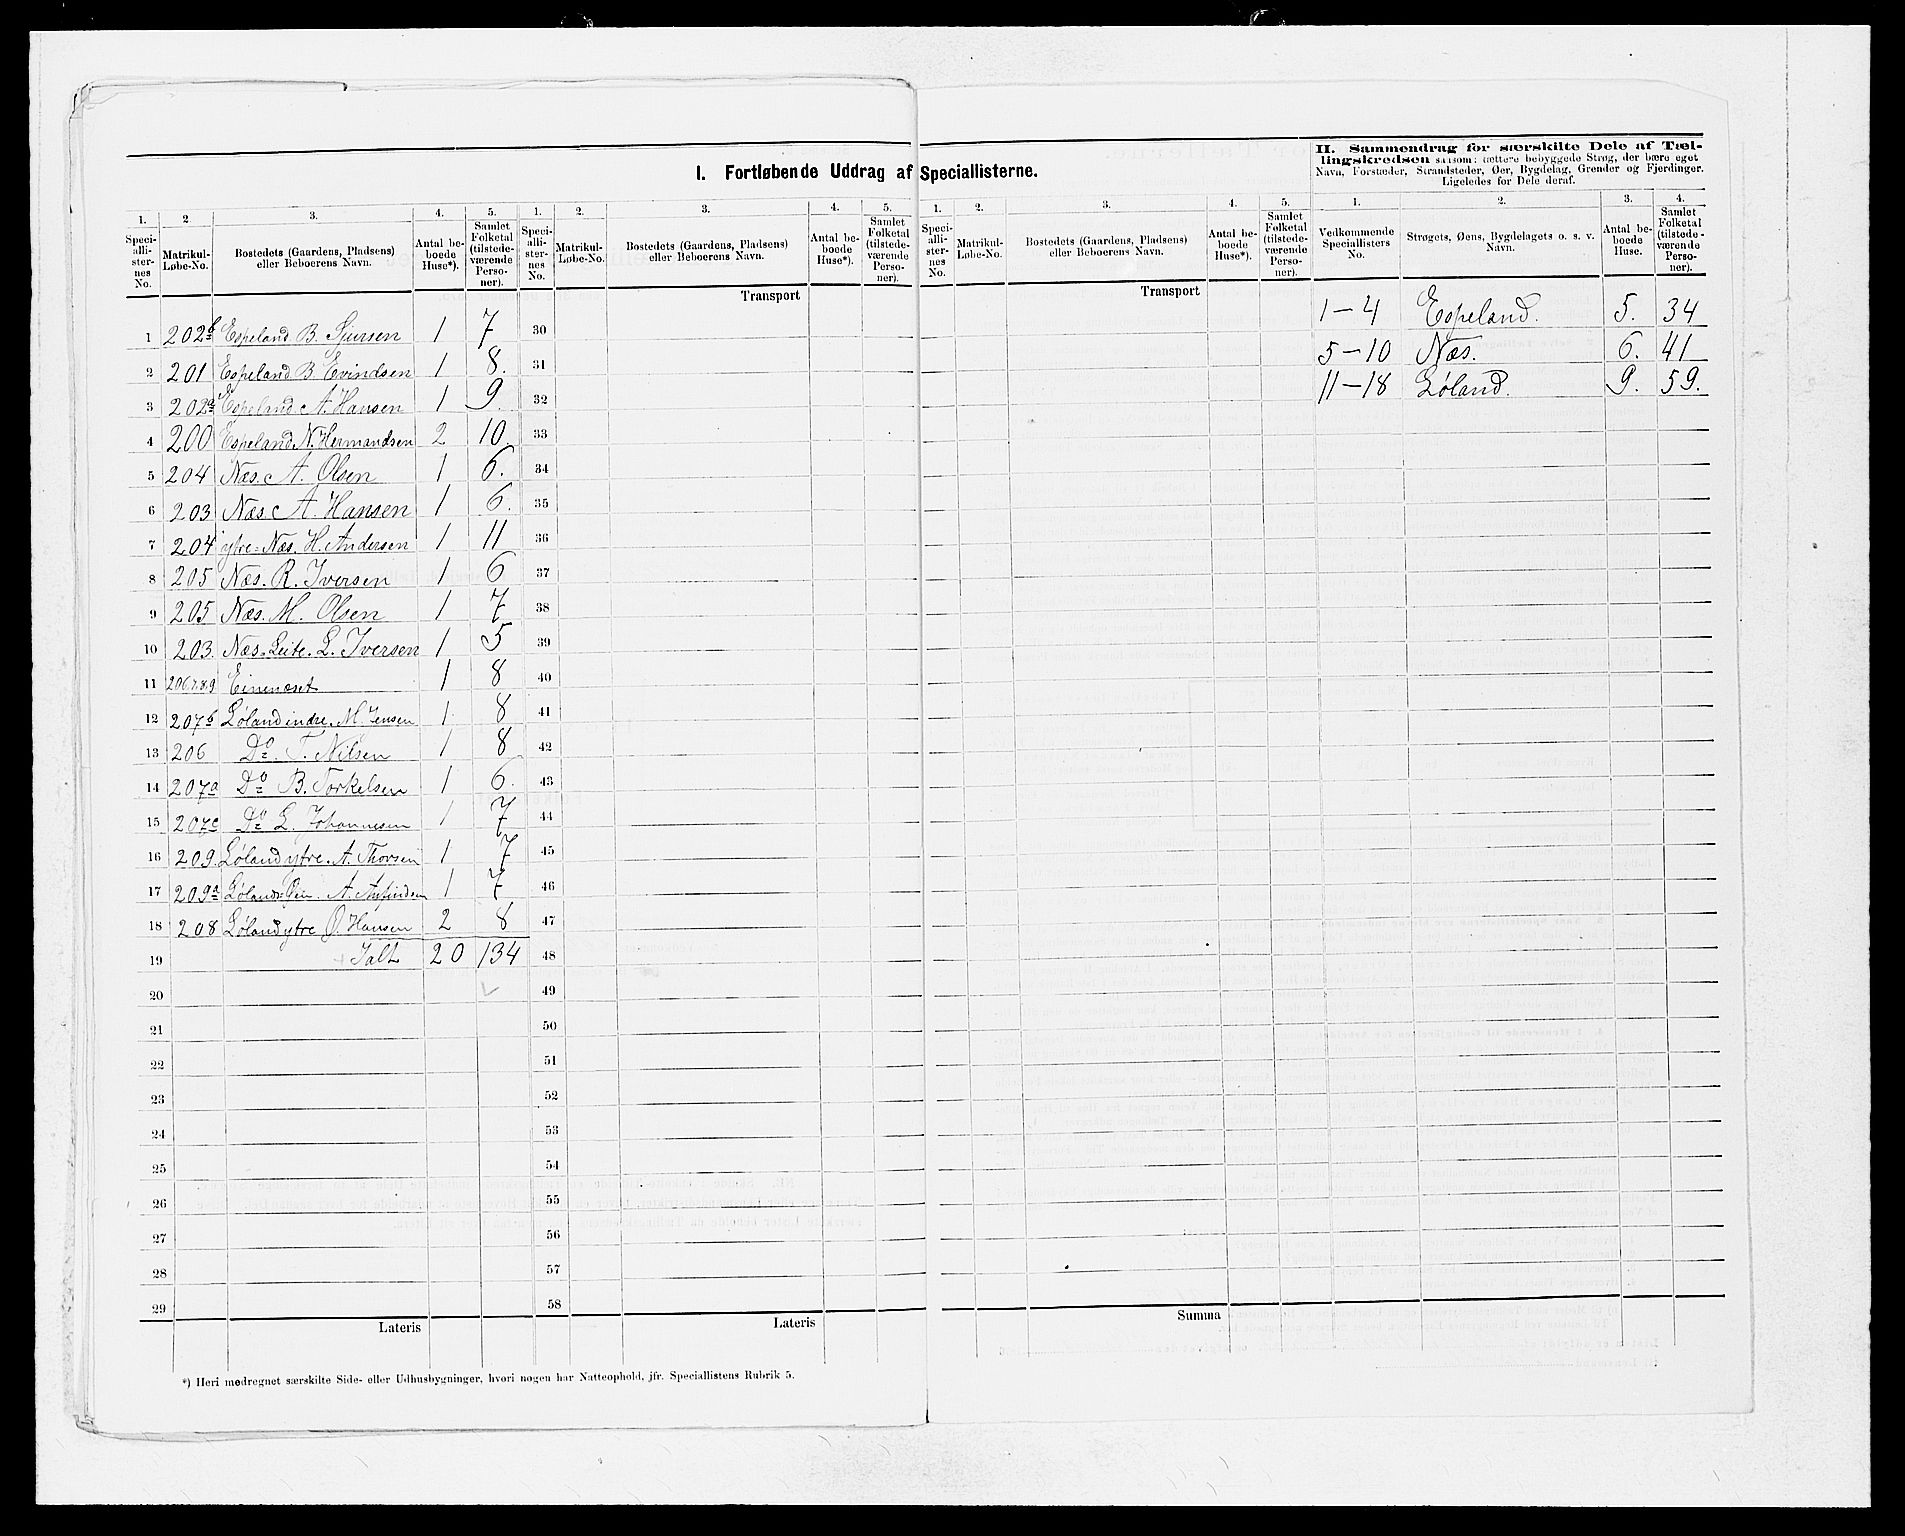 I. Fortløbende Uddrag af Speciallisterne.
II. Sammendrag for særskilte Dele af Tæl-
lingskredsen saasom: tættere bebyggede Strøg, der bære eget
Navn, Forstæder, Strandsteder, Øer, Bygdelag, Grender og Fjerdinger.
Ligeledes for Dele deraf.
1. 2 3. 4. 5. 1. 2. 3. 4. 5. 1. 2. 3. 4. 5. 1. 2. 3. 4.
Speciallisternes No. Matrikul-Løbe-No. Bostedets (Gaardens, Pladsens) eller Beboerens Navn. Antal beboede Huse*). Samlet Folketal (tilstedeværende Personer).
Speciallisternes No. Matrikul-Løbe-No. Bostedets (Gaardens, Pladsens) eller Beboerens Navn. Antal beboede Huse*). Samlet Folketal (tilstedeværende Personer).
Speciallisternes No. Matrikul-Løbe-No. Bostedets (Gaardens, Pladsens) eller Beboerens Navn. Antal beboede Huse*). Samlet Folketal (tilstedeværende Personer).
Vedkommende Speciallisters No. Strøgets, Øens, Bygdelagets o. s. v. Navn. Antal beboede Huse. Samlet Folketal (tilstedeværende Personer).
Transport
Transport
1 202b Espeland B. Sjursen 1 7
2 201 Espeland B Evindsen 1 8.
3 202a Espeland A. Hansen 1 9.
4 200 Espeland N. Hermandsen 2 10.
5 204 Næs. A. Olsen 1 6.
6 203 Næs A. Hansen 1 6.
7 204 ytre=Næs. H. Andersen 1 11
8 205 Næs. R. Iversen 1 6
9 205 Næs. M. Olsen 1 7
10 203. Næs. Leite. L. Iversen 1 5
11 206.7.8.9 Einenæset 1 8
12 207b Løland indre. M. Jensen 1. 8
13 206 Do. T. Nilsen 1 8
14 207a Do B. Torkelsen 1 6.
15 207c Do L. Johannesen 1 7
16 209. Løland ytre. A. Thorsen 1 7
17 209a Lølands Øen. A. Anfindsen 1 7
18 208 Løland ytre O. Hansen 2 8
19 Ialt 20 134
20
21
22
23
24
25
26
27
28
29
Lateris
30
31
32
33
34
35
36
37
38
39
40
41
42
43
44
45
46
47
48
49
50
51
52
53
54
55
56
57
58
Lateris
Summa
1–4 Espeland. 5. 34
5–10 Næs. 6. 41
11–18 Løland. 9. 59.
*) Heri medregnet særskilte Side- eller Udhusbygninger, hvori nogen har Natteophold, jfr. Speciallistens Rubrik 5.